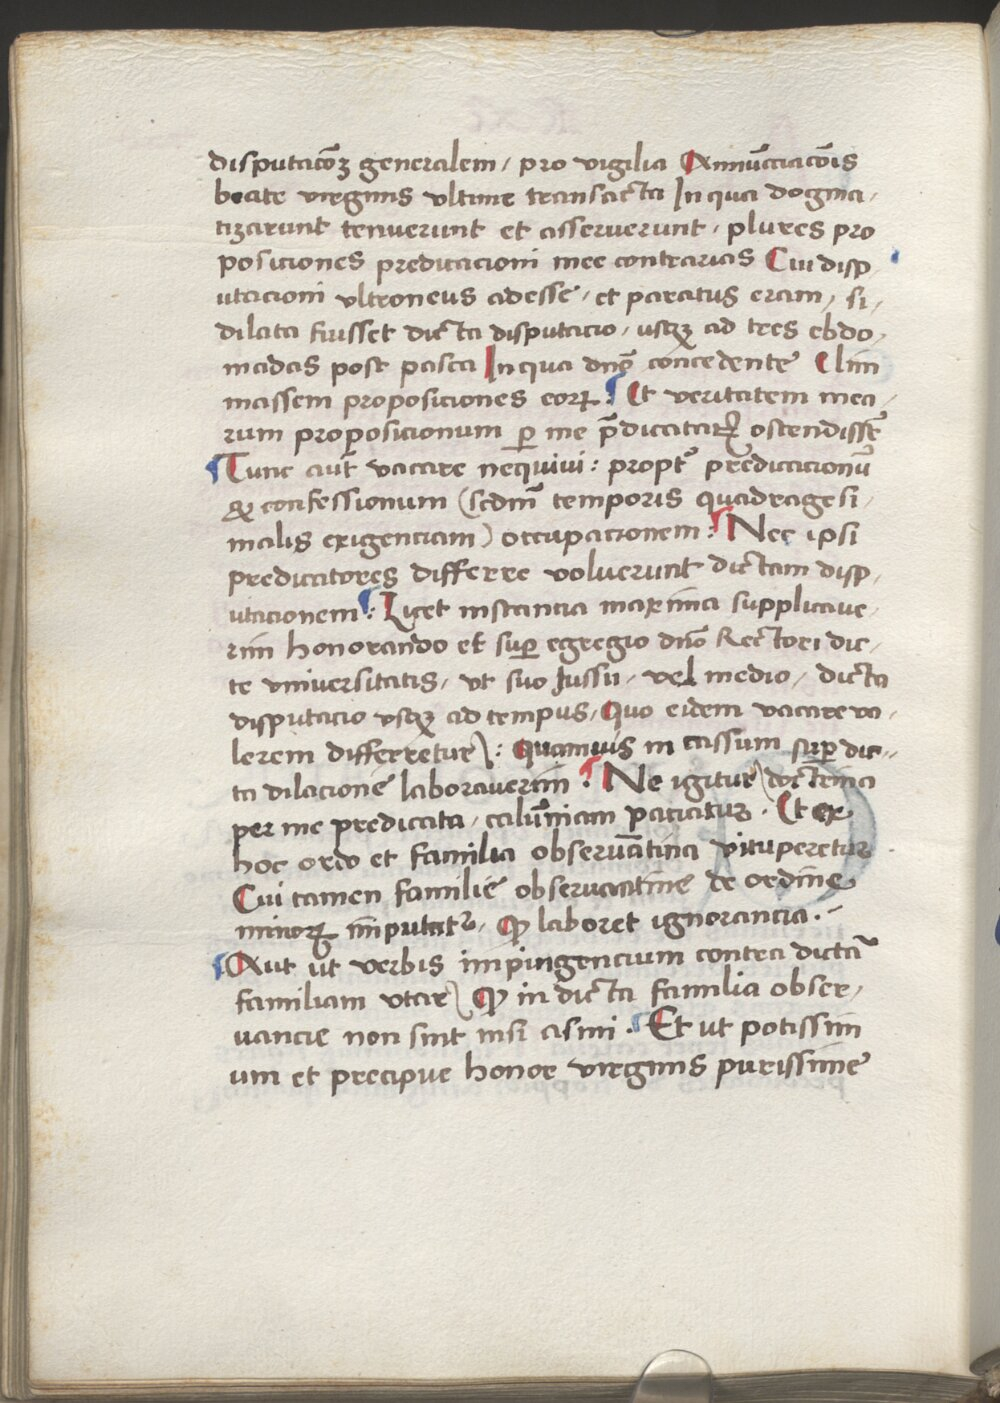 disputacōꝫ generalem / pro vigilia Annūctiacōis
beate virginis vltime transacta In qua dogma /
tizarunt tenuerunt et asseruerunt / plures pro
posiciones predicacioni mee contrarias Cui disp /
utacioni vltroneus adesse / et paratus eram / si /
dilata fuisset dicta disputacio / usqꝫ ad tres ebdo /
madas post pasca In qua dn̄o concedente Elim
inassem proposiciones eorꝝ : Et veritatem mea /
rum proposicionum ꝑ me p̄dicatarꝝ ostendissē
Tunc aūt vacare nequivi : propt̉ predicacionū
& confessionum (scdm̄ temporis quadragesi /
malis exigenciam) occupacionem : Nec ipsi
predicatores differre voluerunt dictam disp /
utacionem : Licet instancia maxima supplicave /
rim honorando et suꝑ egregio dn̄o Rectori dic /
te vniversitatis / vt suo Iussu / vel medio / dicta
disputacio vsqꝫ ad tempus / Quo eidem vacare va /
lerem differretur) : Quamuis in cassum suꝑ dic /
ta dilacione laboraverim : Ne igitur doctrina
per me predicata / calūniam paciatur . Et ex
hoc ordo et familia obseruātina vituperetur
Cui tamen familie observantine de ordine
minorꝝ imputatᷣ / ꝙ laboret ignorancia .
Aut ut verbis impingencium contra dictā
familiam vtar) ꝙ in dicta familia obser /
vancie non sint nisi asini . Et ut potissim
um et precipue honor virginis purissime